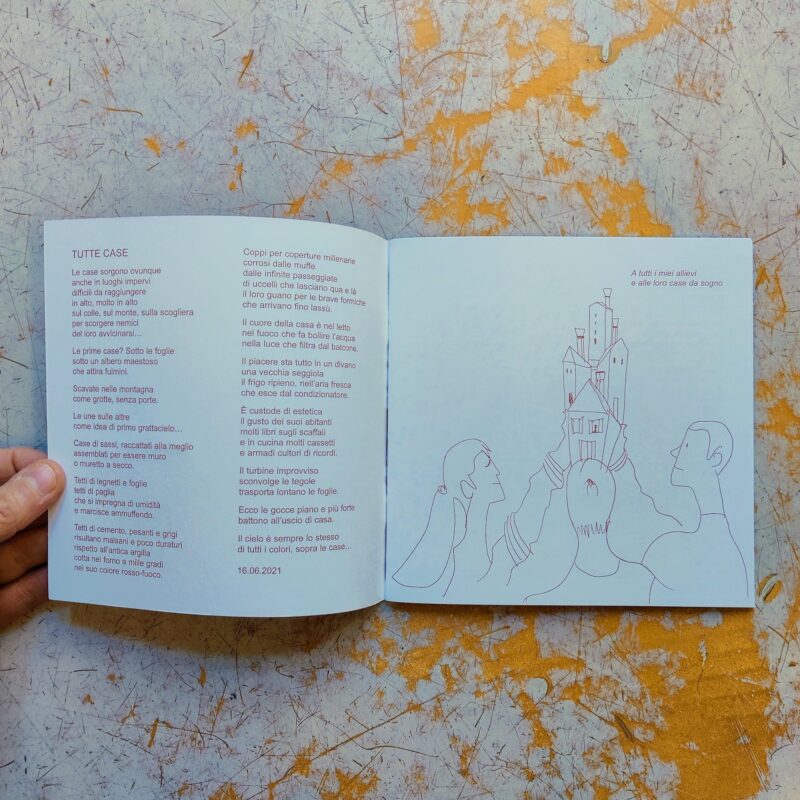 TUTTE CASE
Le case sorgono ovunque
anche in luoghi impervi
difficili da raggiungere
in alto, molto in alto
sul colle, sul monte, sulla scogliera
per scorgere nemici
del loro avvicinarsi...
Le prime case? Sotto le foglie
sotto un albero maestoso
che attira fulmini.
Scavate nelle montagna
come grotte, senza porte.
Le une sulle altre
come idea di primo grattacielo...
Case di sassi, raccattati alla meglio
assemblati per essere muro
o muretto a secco.
Tetti di legnetti e foglie
tetti di paglia
che si impregna di umidità
e marcisce ammuffendo.
Tetti di cemento, pesanti e grigi
risultano malsani e poco duraturi
rispetto all'antica argilla
cotta nel forno a mille gradi
nel suo colore rosso-fuoco.
Coppi per coperture millenarie
corrosi dalle muffe
dalle infinite passeggiate
di uccelli che lasciano qua e là
il loro guano per le brave formiche
che arrivano fino lassù.
Il cuore della casa è nel letto
nel fuoco che fa bollire l'acqua
nella luce che filtra dal balcone.
Il piacere sta tutto in un divano
una vecchia seggiola
il frigo ripieno, nell'aria fresca
che esce dal condizionatore.
É custode di estetica
il gusto dei suoi abitanti
molti libri sugli scaffali
e in cucina molti cassetti
e armadi cultori di ricordi.
Il turbine improvviso
sconvolge le tegole
trasporta lontano le foglie.
Ecco le gocce piano e più forte
battono all'uscio di casa.
Il cielo è sempre lo stesso
di tutti i colori, sopra le case...
16.06.2021
A tutti i miei allievi
e alle loro case da sogno